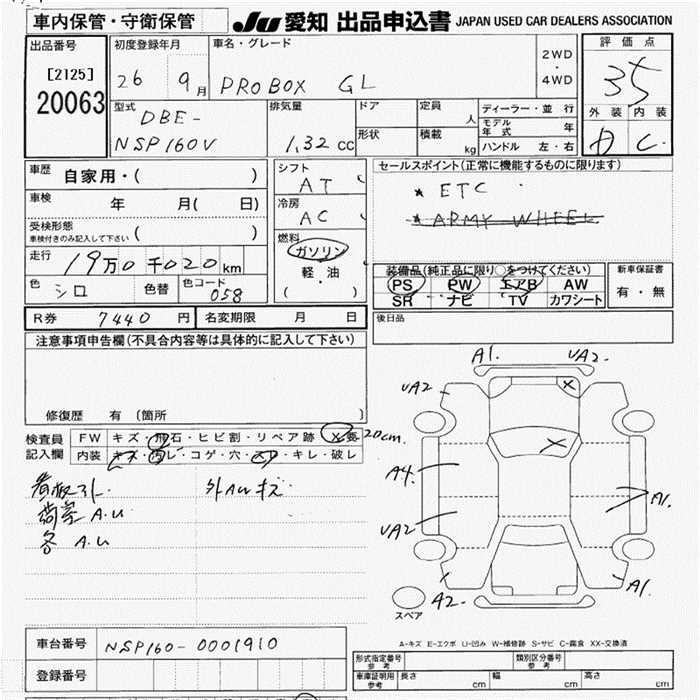 車内保管・守衛保管
JU 愛知 出品申込書 JAPAN USED CAR DEALERS ASSOCIATION
出品番号
[2125]
20063
初度登録年月
26 9月
車名・グレード
PROBOX GL
2WD
・
4WD
評価点
3.5
外装 内装
D C
型式
DBE-
NSP160V
排気量
1.32 CC
ドア
形状
定員
人
積載
kg
ディーラー・並 行
モデル年式 年
ハンドル 左・右
車歴 自家用・( )
車検 年 月( 日)
受検形態
車検付きのみ記入して下さい ( )
走行 19万0千020km
色 シロ 色替 色コード 058
シフト
AT
冷房
AC
燃料
ガソリン
軽・油
( )
セールスポイント(正常に機能するものに限ります)
* ETC
* ARMY WHEEL
装備品(純正品に限り○をつけてください)
PS PW エアB AW
SR ナビ TV カワシート
新車保証書
有・無
後日品
R券 7440円 名変期限 月 日
注意事項申告欄(不具合内容等は具体的に記入して下さい)
修復歴 有 (箇所 )
検査員
記入欄
FW キズ・飛石・ヒビ割・リペア跡 X要 20cm.
内装 キズ・汚レ・コゲ・穴・スレ・キレ・破レ
看板引ト. 外AWキズ
荷室 A.U
各 A.U
A1. UA2.
UA2
A4.
A1.
UA2
A1.
A2.
スペア
A-キズ E-エクボ U-凹み W-補修跡 S-サビ C-腐食 XX-交換済
車台番号 NSP160-0001910
登録番号
形式指定番号
参考
類別区分番号
参考
車庫証明用
参考
長さ cm 幅 cm 高さ cm